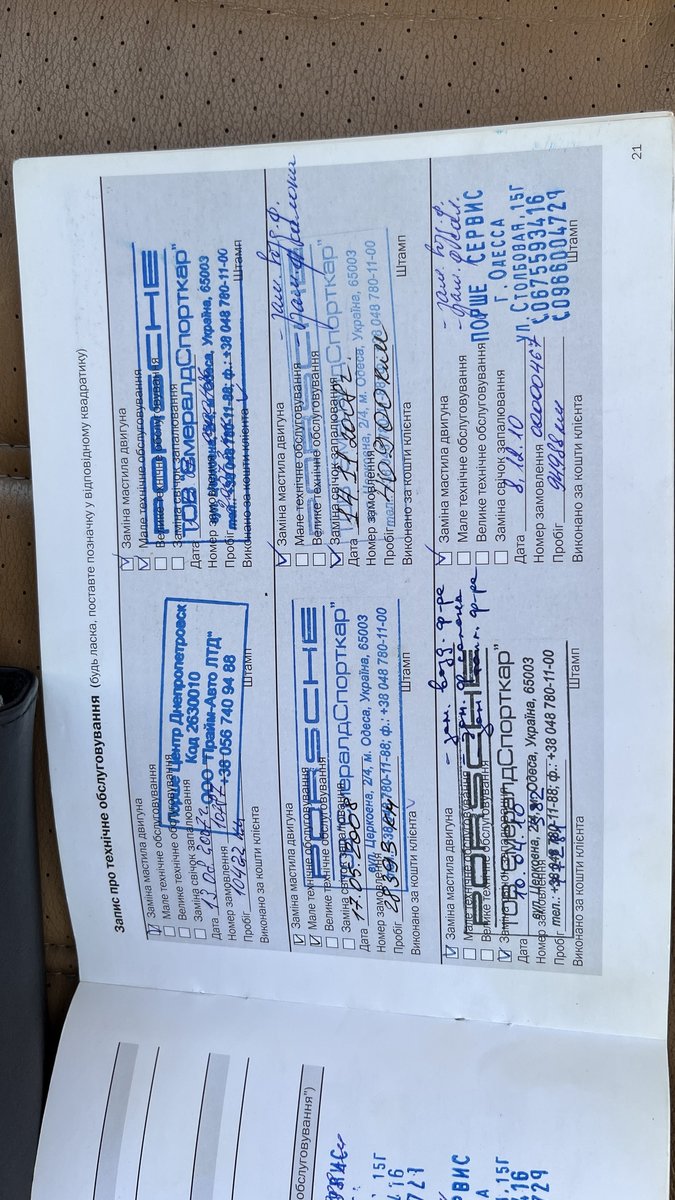 Запис про технічне обслуговування (будь ласка, поставте позначку у відповідному квадратику)
Заміна мастила двигуна
Мале технічне обслуговування
Велике технічне обслуговування
Заміна свічок запалювання
Дата 13 08 2007г
Номер замовлення
Пробіг 10422 км
Виконано за кошти клієнта
Порше Центр Днепропетровск
Код 2630010
ООО "Прайм-Авто ЛТД"
+38 056 740 94 88
Штамп
Заміна мастила двигуна
Мале технічне обслуговування
Велике технічне обслуговування
Заміна свічок запалювання
Дата
Номер замовлення
Пробіг
Виконано за кошти клієнта
PORSCHE
ТОВ "СмералдСпорткар"
вул. Церковна, 2/4, м. Одеса, Україна, 65003
тел.: +38 048 780-11-88; ф.: +38 048 780-11-00
Штамп
Заміна мастила двигуна
Мале технічне обслуговування
Велике технічне обслуговування
Заміна свічок запалювання
Дата 17.05.2008
Номер замовлення
Пробіг
Виконано за кошти клієнта
PORSCHE
СмералдСпорткар"
вул. Церковна, 2/4, м. Одеса, Україна, 65003
780-11-88; ф.: +38 048 780-11-00
Штамп
Заміна мастила двигуна
Мале технічне обслуговування
Велике технічне обслуговування
Заміна свічок запалювання
Дата 14.11.2008г.
Номер замовлення
Пробіг 40900 км
Виконано за кошти клієнта
- зам. возд. ф.
PORSCHE
СмералдСпорткар"
Церковна, 2/4, м. Одеса, Україна, 65003
048 780-11-00
Штамп
Заміна мастила двигуна
Мале технічне обслуговування
Велике технічне обслуговування
Заміна свічок запалювання
Дата 16.04.10
Номер замовлення
Пробіг
Виконано за кошти клієнта
- зам. возд. ф-ра
PORSCHE
ТОВ "СмералдСпорткар"
вул. Церковна, 2/4, м. Одеса, Україна, 65003
тел.: +38 048 780-11-88; ф.: +38 048 780-11-00
Штамп
Заміна мастила двигуна
Мале технічне обслуговування
Велике технічне обслуговування
Заміна свічок запалювання
Дата 8.12.10
Номер замовлення 00000467
Пробіг 94988 км
Виконано за кошти клієнта
- зам. возд. ф.
ПОРШЕ СЕРВИС
Г. ОДЕССА
УЛ. СТОЛБОВАЯ, 15Г
С0675593416
С0966004729
Штамп
21
обслуговування")